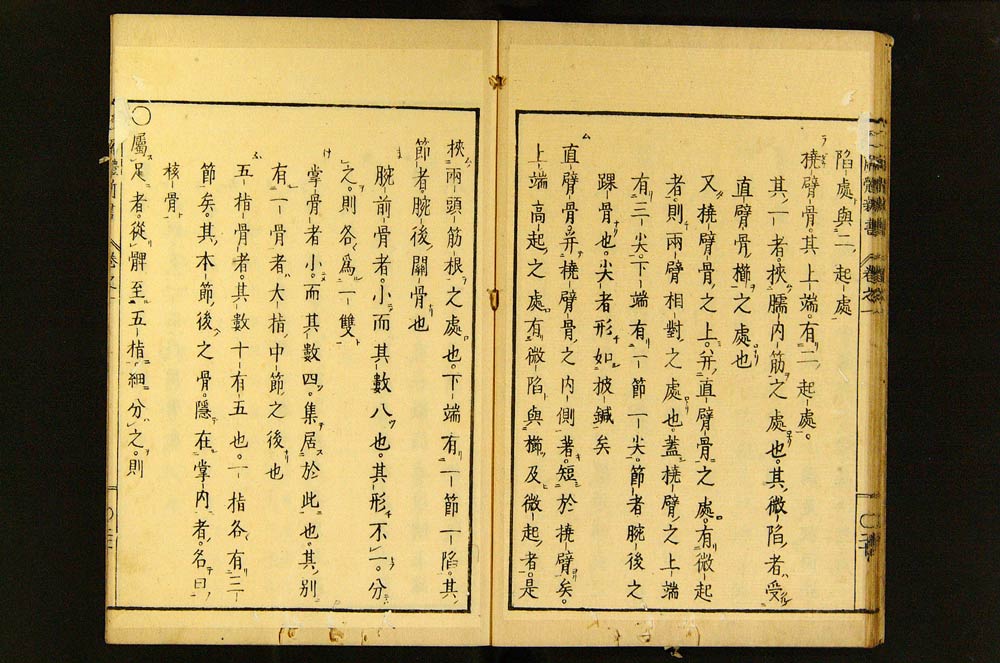 陷處與二起處
橈臂骨。其上端有二起處。
其一者。挾臑内筋之處也。其微陷者受
直臂骨櫛之處也
又橈臂骨之上。并直臂骨之處。有微起
者。則兩臂相對之處也。蓋橈臂之上端
有三尖。下端有一節一尖。節者腕後之
踝骨也。尖者形如披鍼矣
直臂骨。并橈臂骨之内側著。短於橈臂矣。
上端高起之處。有微陷與櫛及微起者。是
挾兩頭筋根之處也。下端有一節一陷。其
節者腕後關骨也
腕前骨者。小而其數八也。其形不一。分
之。則各爲一雙
掌骨者小。而其數四。集居於此也。其別
有一骨者。大指中節之後也
五指骨者。其數十有五也。一指各有三
節矣。其本節後之骨。隱在掌内者。名曰
核骨
〇屬足者。從髀至五指。細分之。則